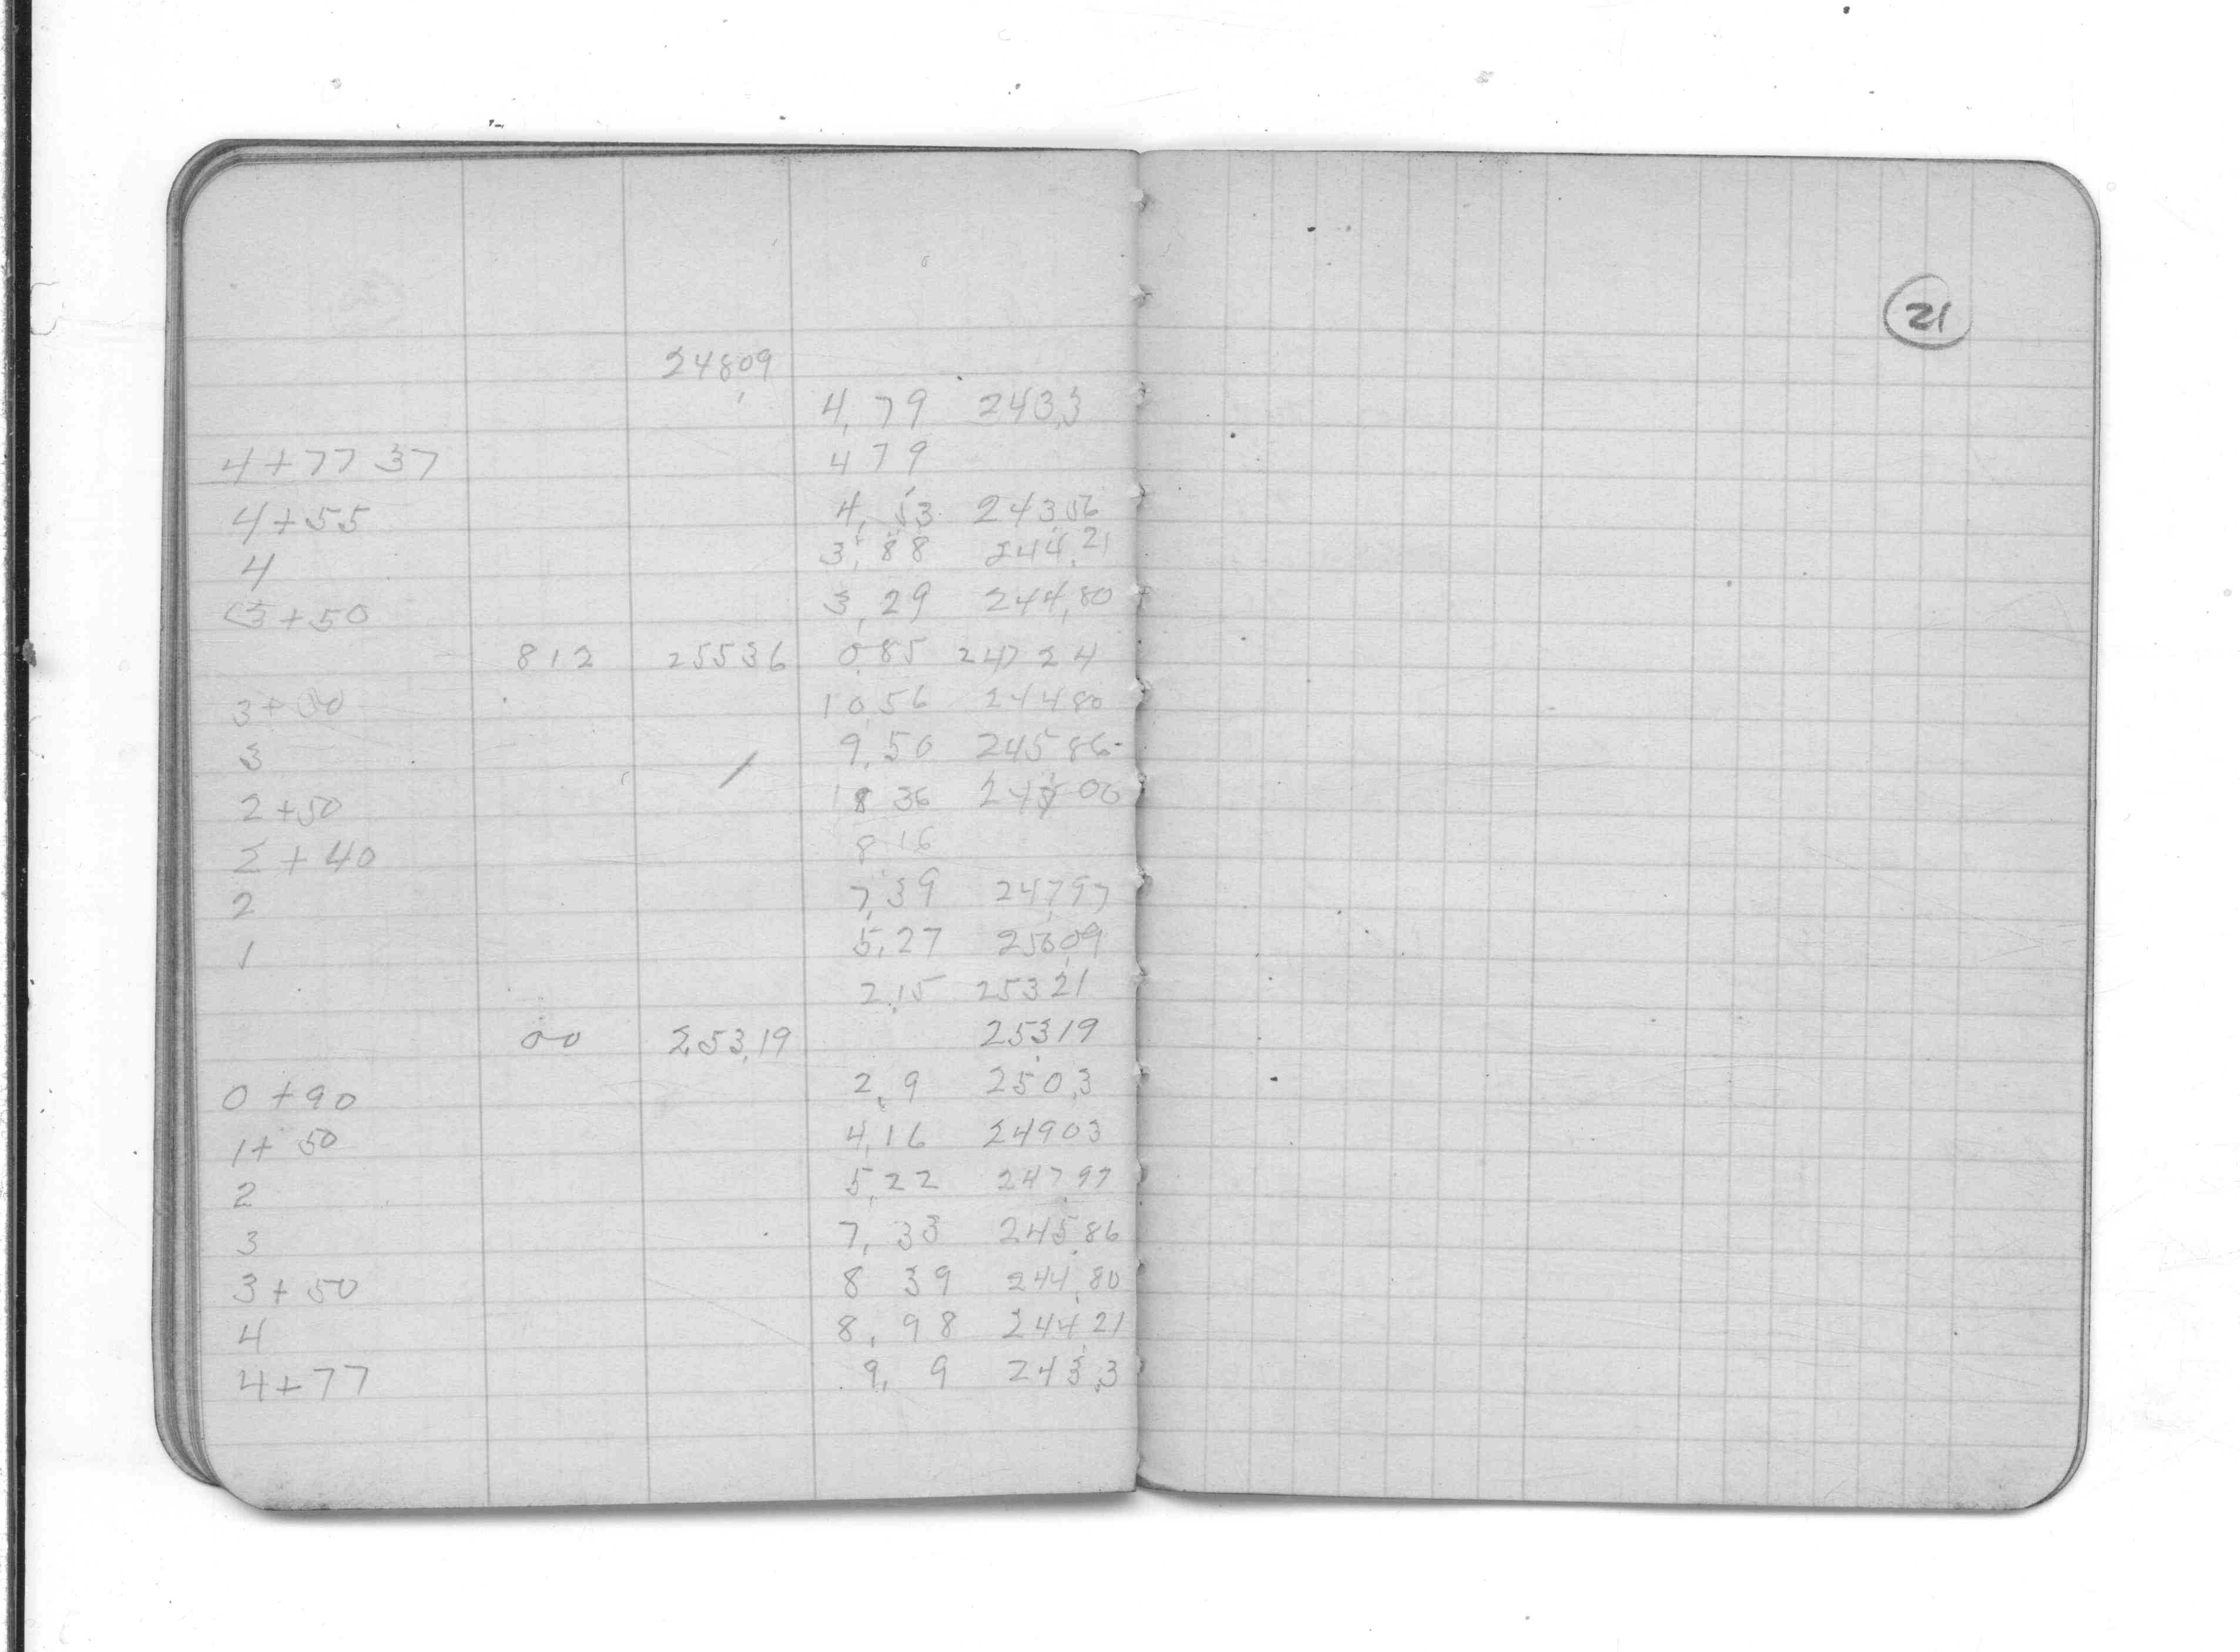 21
24809
4,79 243,3
4+77 37 479
4+55 4,53 243,56
4 3,88 244,21
3+50 3,29 244,80
812 25536 0,85 247 24
3+50 10,56 244 80
3 9,50 245 86
2+50 18 36 00
2+40 8 16
2 7,39 247,97
1 5,27 250,09
2,15 253 21
00 253,19 253,19
0+90 2,9 250,3
1+50 4,16 24903
2 5,22 247,97
3 7,33 245,86
3+50 8 39 244,80
4 8,98 244,21
4+77 9,9 243,3